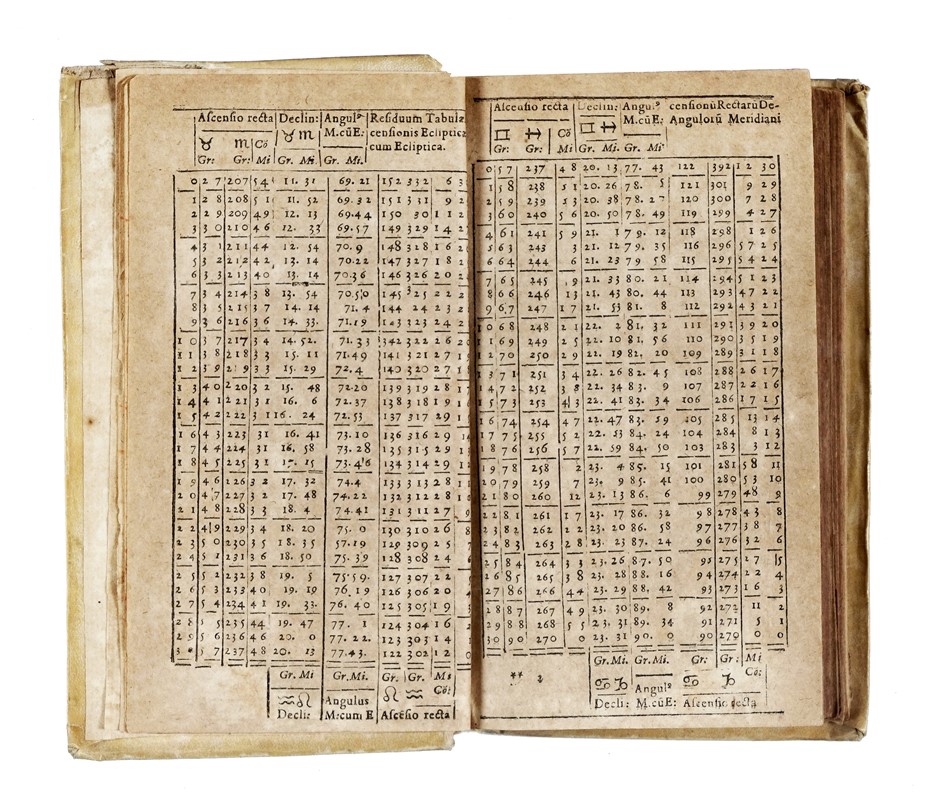 Aſcenſio recta Declin: Angulꝰ Reſiduum Tabulæ
♉ ♏ Cō ♉ ♏ M.cūE: cenſionis Ecliptica
cum Ecliptica.
Gr: Gr: Mi Gr. Mi. Gr. Mi.
0 27 207 54 11. 31 69. 21 152 332 6
1 28 208 51 11. 52 69. 32 151 331 9
2 29 209 49 12. 13 69.44 150 30 11
3 30 210 46 12. 33 69.57 149 329 14
4 31 211 44 12. 54 70.9 148 328 16
5 32 212 42 13. 14 70.22 147 327 18
6 33 213 40 13. 14 70.36 146 326 20
7 34 214 38 13. 54 70.50 145 325 22
8 35 215 37 14. 14 71.4 144 24 23
9 36 216 36 14. 33. 71.19 143 323 24
10 37 217 34 14. 52. 71.33 342 322 26
11 38 218 33 15. 11 71.49 141 321 27
12 39 219 33 15. 29 72.4 140 320 27
13 40 220 32 15. 48 72.20 139 319 28
14 41 221 31 16. 6 72.37 138 318 19
15 42 222 31 16. 24 72.53 137 317 29
16 43 223 31 16. 41 73.10 136 316 29
17 44 224 31 16. 58 73.28 135 315 29
18 45 225 31 17. 15 73.46 134 314 29
19 46 126 32 17. 32 74.4 133 313 28
20 47 227 32 17. 48 74.22 132 312 28
21 48 228 33 18. 4 74.41 131 311 27
22 49 229 34 18. 20 75.0 130 310 26
23 50 230 35 18. 35 57.19 129 309 25
24 51 231 36 18. 50 75.39 128 308 24
25 52 232 38 19. 5 75.59. 127 307 22
26 53 233 40 19. 19 76.19 126 306 20
27 54 234 41 19. 33. 76.40 125 305 19
28 55 235 44 19. 47 77. 1 124 304 16
29 56 236 46 20. 0 77. 22. 123 303 14
3 57 237 48 20. 13 77.43. 122 302 12
Gr. Mi. Gr.Mi. Gr. Gr. Mi
♒ ♌ Angulus ♌ ♒ Cō:
Decli: M:cum E Aſcēſio recta
Aſcenſio recta Declin: Angulꝰ cenſionū Rectarū De-
♊ ♐ Cō ♊ ♐ M.cūE: Angulorū Meridiani
Gr: Gr: Mi Gr. Mi. Gr. Mi.
0 57 237 48 20. 13 77. 43 122 392 12 30
1 58 238 51 20. 26 78. 5 121 301 9 29
2 59 239 53 20. 38 78. 120 300 7 28
3 60 240 56 20. 50 78. 49 119 299 4 27
4 61 241 59 21. 1 79. 12 118 298 1 26
5 63 243 3 21. 12 79. 35 116 296 57 25
6 64 244 6 21. 23 79 58 115 295 54 24
7 65 245 9 21. 33 80. 21 114 294 51 23
8 66 246 13 21. 43 80. 44 113 293 47 22
9 67 247 17 21. 53 81. 8 112 292 43 21
10 68 248 21 22. 2 81. 32 111 291 39 20
11 69 249 25 22. 10 81. 56 110 290 35 19
12 70 250 29 22. 19 82. 20 109 289 31 18
13 71 251 34 22. 26 82. 45 108 288 26 17
14 72 252 38 22. 34 83. 9 107 287 22 16
15 73 253 43 22. 41 83. 34 106 286 17 15
16 74 254 47 22. 47 83. 59 105 285 13 14
17 75 255 52 22. 53 84. 24 104 284 8 13
18 76 256 57 22. 59 84. 50 103 283 3 12
19 78 258 2 23. 4 85. 15 101 281 58 11
20 79 259 7 23. 9 85. 41 100 280 53 10
21 80 260 12 23. 13 86. 6 99 279 48 9
22 81 261 17 23. 17 86. 32 98 278 43 8
23 82 262 22 23. 20 86. 58 97 277 38 7
24 83 263 28 23. 23 87. 24 96 276 32 6
25 84 264 33 23. 26 87. 50 95 275 27 5
26 85 265 38 23. 28 88. 16 94 274 22 4
27 86 266 44 23. 29 88. 42 93 273 16 3
28 87 267 49 23. 30 89. 8 92 272 11 2
29 88 268 55 23. 31 89. 34 91 271 5 1
30 90 270 0 23. 31 90. 0 90 270 0 0
Gr. Mi. Gr. Mi. Gr: Gr: Mi
♋ ♑ Angulꝰ ♋ ♑ Cō:
Decli: M.cūE: Aſcenſio recta
** 2